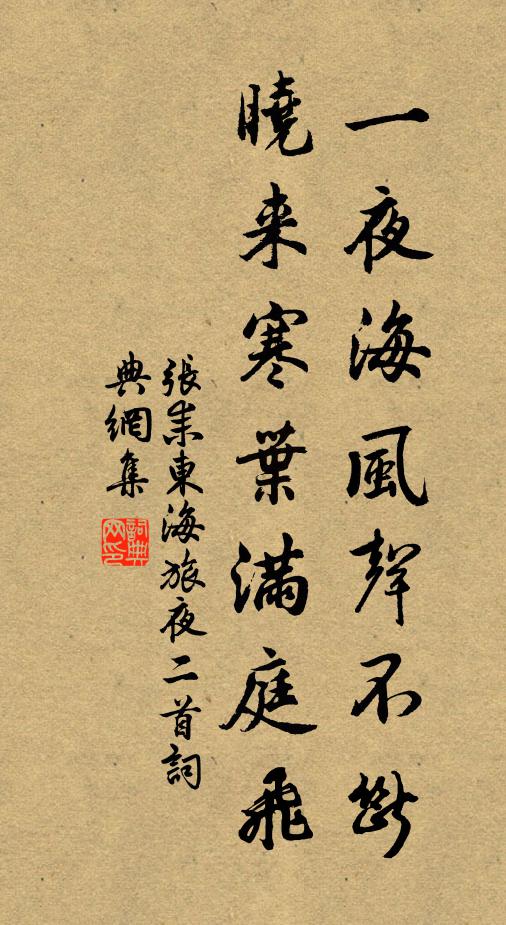 一夜海風聲不斷
曉来寒葉滿庭飛
張耒東海旅夜二首詞
典網集
詞典網印